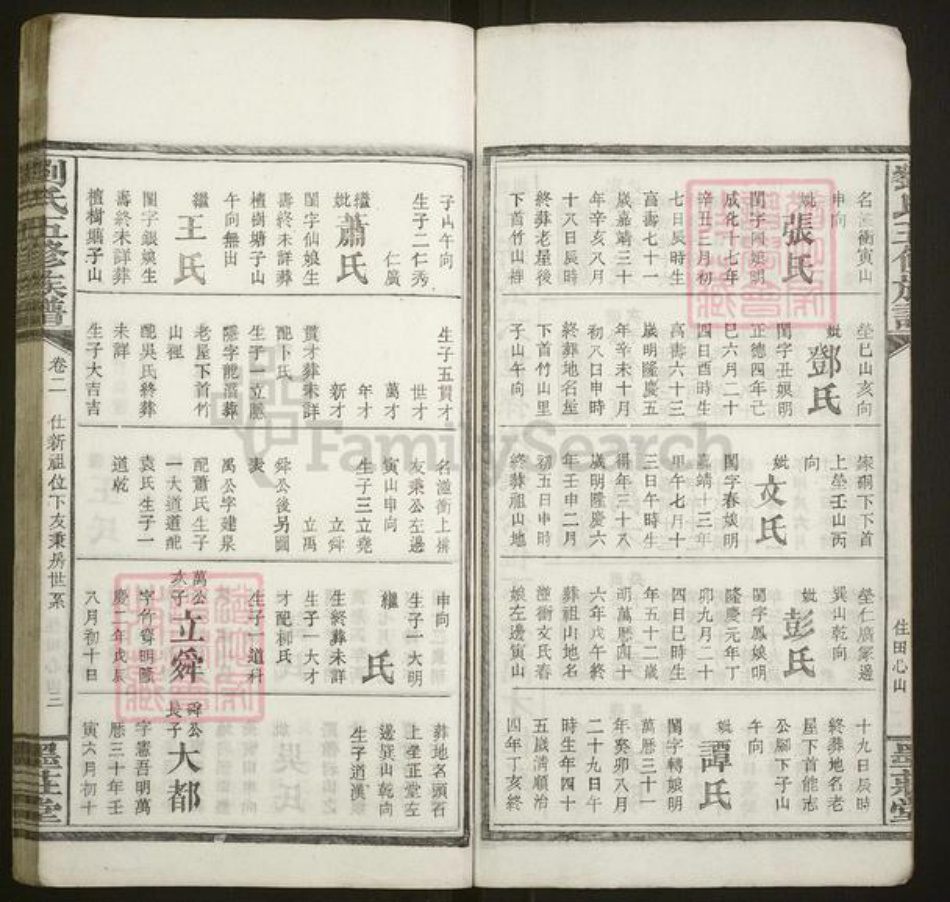 劉氏五修族譜
名潼衝寅山
申向
妣張氏
閨字閑娘明
成化十七年
辛丑三月初
七日辰時生
高壽七十一
歲嘉靖三十
年辛亥八月
十八日辰時
終葬老屋後
下首竹山排
塋巳山亥向
妣鄧氏
閨字丑娘明
正德四年己
巳六月二十
四日酉時生
高壽六十三
歲明隆慶五
年辛未十月
初八日申時
終葬地名屋
下首竹山里
子山午向
冢嗣下下首
上塋壬山丙
向
妣文氏
閨字春娘明
嘉靖十三年
甲午七月十
三日午時生
得年三十八
歲明隆慶六
年壬申二月
初五日申時
終葬祖山地
塋仁廣冢邊
巽山乾向
妣彭氏
閨字鳳娘明
隆慶元年丁
卯九月二十
四日巳時生
年五十二歲
明萬曆四十
六年戊午終
葬祖山地名
潼衝文氏春
娘左邊寅山
十九日辰時
終葬地名老
屋下首能志
公腳下子山
午向
妣譚氏
閨字轉娘明
萬曆三十一
年癸卯八月
二十九日午
時生年四十
五歲清順治
四年丁亥終
住田心山
墨莊堂
子山午向
生子二仁秀
仁廣
繼妣蕭氏
閨字仙娘生
壽終未詳葬
檀樹塘子山
午向無出
繼王氏
閨字銀娘生
壽終未詳葬
檀樹塘子山
生子五貫才
世才
萬才
年才
新才
貫才葬未詳
配卜氏
生子一立勝
隱字龍溜葬
老屋下首竹
山裡
配吳氏終葬
未詳
生子大吉吉
名潼衝上排
友秉公左邊
寅山申向
生子三立堯
立舜
立禹
舜公後另圖
表
禹公字建泉
配蕭氏生子
一大道道配
袁氏生子一
道乾
申向
生子一大明
繼氏
生終葬未詳
生子一大才
才配柳氏
生子一道科
萬公次子立舜
字竹齋明隆
慶二年戊辰
八月初十日
葬地名頭石
上塋正堂左
邊巽山乾向
生子道漢
舜公長子大都
字憲吾明萬
曆三十年壬
寅六月初十
劉氏五修族譜
卷二
仕新祖位下友秉房世系
墨莊堂